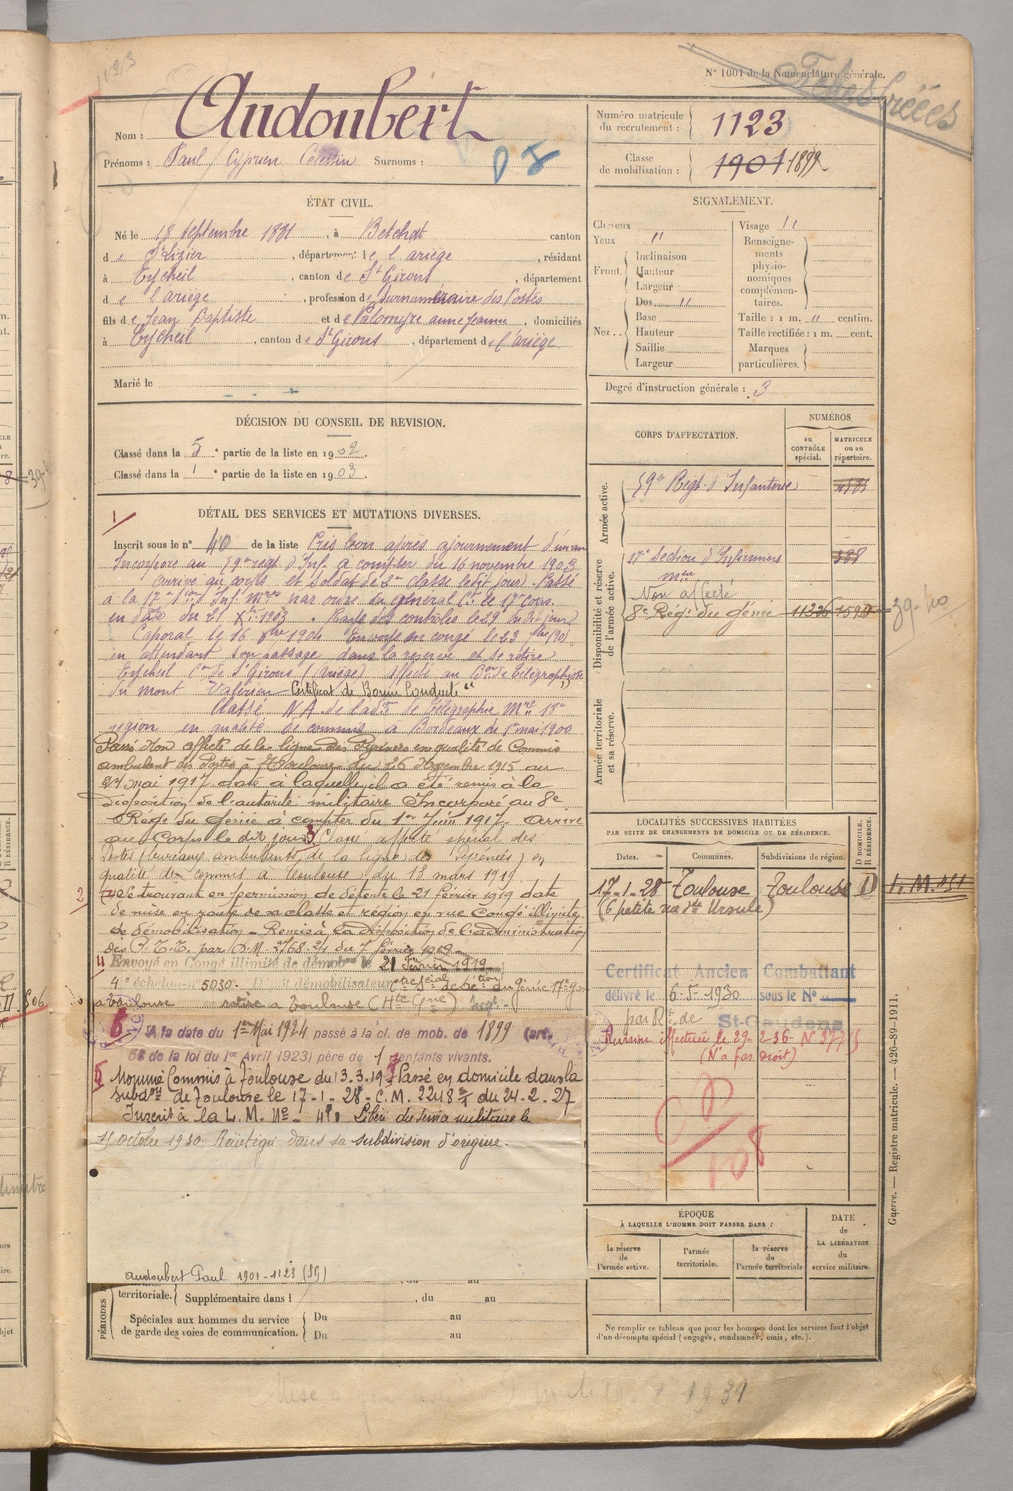 N° 1601 de la Nomenclature générale.
1123
Nom : Audoubert
Prénoms : Paul Cyprien Célestin Surnoms :
Numéro matricule du recrutement : 1123
Classe de mobilisation : 1901 1899
ÉTAT CIVIL.
Né le 18 septembre 1881, à Betchat canton
de St Lizier, département de l'ariège, résidant
à Eycheil, canton de St Girons, département
de l'ariège, profession de surnuméraire des Postes
fils de Jean Baptiste et de Palomyre anne Jeanne, domiciliés
à Eycheil, canton de St Girons, département de l'ariège
Marié le
SIGNALEMENT.
Cheveux
Yeux "
Front
Inclinaison
Hauteur
Largeur
Nez
Dos "
Base
Hauteur
Saillie
Largeur
Visage "
Renseignements physionomiques complémentaires.
Taille : 1 m. " centim.
Taille rectifiée : 1 m. cent.
Marques particulières.
Degré d'instruction générale : 3
DÉCISION DU CONSEIL DE REVISION.
Classé dans la 5e partie de la liste en 1902.
Classé dans la 1e partie de la liste en 1903.
DÉTAIL DES SERVICES ET MUTATIONS DIVERSES.
Inscrit sous le n° 40 de la liste Pris bon après ajournement d'un an
Incorporé au 59e régt d'Inf. à compter du 16 novembre 1903
arrivé au corps et soldat de 2e classe ledit jour. Passé
à la 17e Son d'Inf. Mres par ordre du général Ct le 17e Corps
en date du 21 Xbre 1903. Rayé des contrôles le 29 dudit jour
Caporal le 16 1904 Envoyé en congé le 23
en attendant son passage dans la réserve et se retire
Eycheil Con de St Girons (Ariège) affecté au Bon de télégraphistes
du mont Valérien Certificat de Bonne Conduite "
Classé N.A. de la de télégraphie Mre 18e
région en qualité de commis à Bordeaux du 1er mai 1900
Passé Non affecté de la ligne des Pyrénées en qualité de Commis
ambulant des Postes à Toulouse du 26 1915 au
24 mai 1917 date à laquelle il a été remis à la
disposition de l'autorité militaire Incorporé au 8e
Régt du génie à compter du 1er Juin 1917 Arrivé
au Corps le dit jour. 3 Classé affecté spécial des
Postes (bureaux ambulants de la ligne des Pyrénées) en
qualité de Commis à Toulouse, du 13 mars 1919
2 se trouvant en permission de détente le 21 Février 1919 date
de mise en route de sa classe et région en vue Congé illimité
de démobilisation. Remis à la disposition de l'administration
des P.T.T. par D.M. 2768. 2/1 du 7 février 1919
4 Envoyé en Congé illimité de démobon le 21 Février 1919
4e échelon n° 5030. Dépôt démobilisateur du Génie
à Toulouse retiré à Toulouse (Hte Gne)
6 A la date du 1er Mai 1924 passé à la cl. de mob. de 1899 (art.
58 de la loi du 1er Avril 1923) père de 1 enfants vivants.
5 Nommé Commis à Toulouse du 13.3.19 Passé en domicile dans la
subdon de Toulouse le 17-1-28. C.M. 2248 du 24-2-27
Inscrit à la L.M. No 41 Libéré du service militaire le
15 octobre 1930 Réintégré dans sa subdivision d'origine.
Audoubert Paul 1901-1123 (SG)
PÉRIODES
territoriale. Supplémentaire dans l , du au
Spéciales aux hommes du service de garde des voies de communication. Du au
Du au
CORPS D'AFFECTATION.
NUMÉROS
au CONTRÔLE spécial.
MATRICULE ou au répertoire.
Armée active.
59e Régt d'Infanterie
Disponibilité et réserve de l'armée active.
17e Section d'Infirmiers mres 188
Non affecté
8e Régt du génie 11326
39-40
Armée territoriale et sa réserve.
LOCALITÉS SUCCESSIVES HABITÉES
PAR SUITE DE CHANGEMENTS DE DOMICILE OU DE RÉSIDENCE.
Dates.
Communes.
Subdivisions de région.
D DOMICILE.
R RÉSIDENCE.
17-1-28 Toulouse Toulouse D
(6 petite rue Ste Ursule)
Certificat Ancien Combattant
délivré le 6-5-1930 sous le N°
par R. de St-Gaudens
Révision effectuée le 29-2-36
(N'a pas droit)
ÉPOQUE
À LAQUELLE L'HOMME DOIT PASSER DANS :
la réserve de l'armée active.
l'armée territoriale.
la réserve de l'armée territoriale
DATE de LA LIBÉRATION du service militaire.
Ne remplir ce tableau que pour les hommes dont les services font l'objet
d'un décompte spécial (engagés, condamnés, omis, etc.).
Guerre. — Registre matricule. — 426-89-1911.